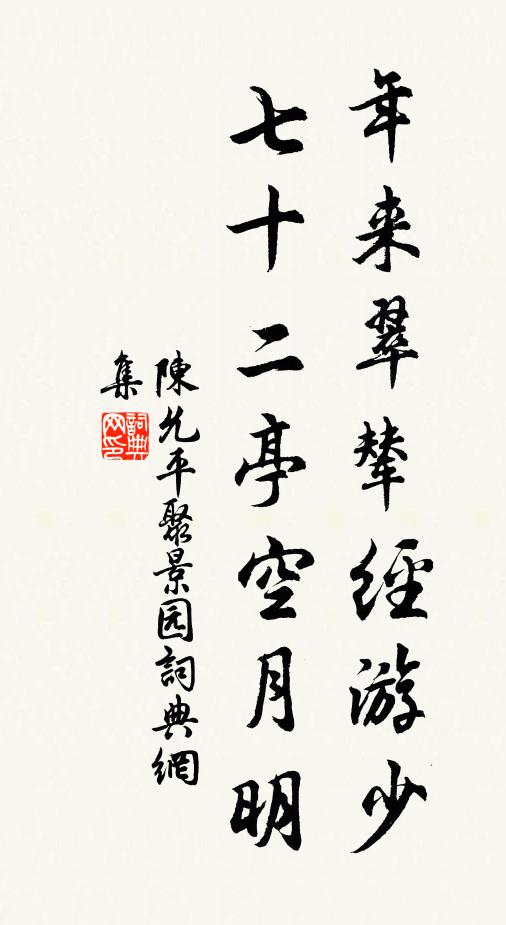 年来翠辇經游少
七十二亭空月明
陳允平聚景园詞典網
集
詞典
网印